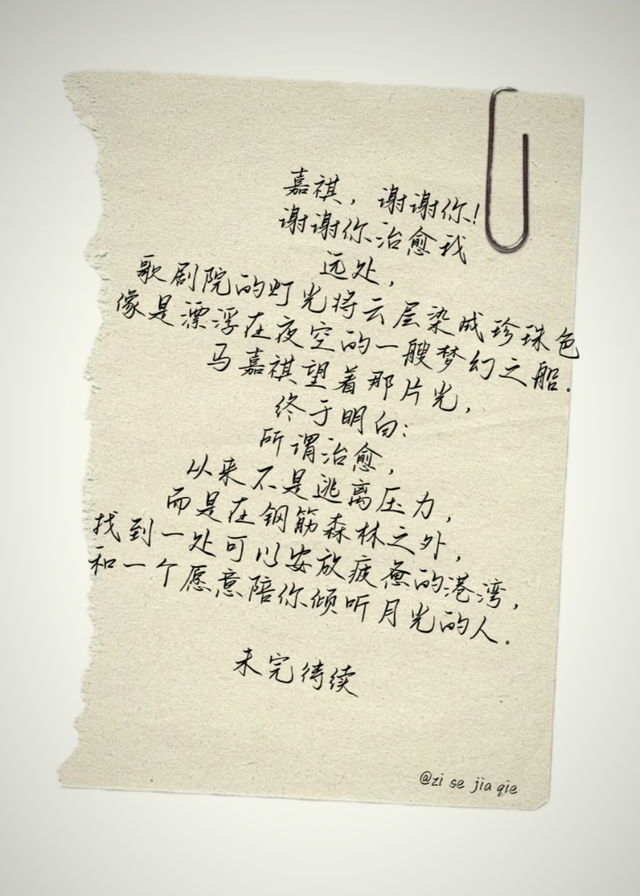 嘉祺，谢谢你！
谢谢你治愈我
远处，
歌剧院的灯光将云层染成珍珠色
像是漂浮在夜空的一艘梦幻之船．
马嘉祺望着那片光，
终于明白：
所谓治愈，
从来不是逃离压力，
而是在钢筋森林之外，
找到一处可以安放疲惫的港湾，
和一个愿意陪你倾听月光的人．
未完待续
@zi se jia qie